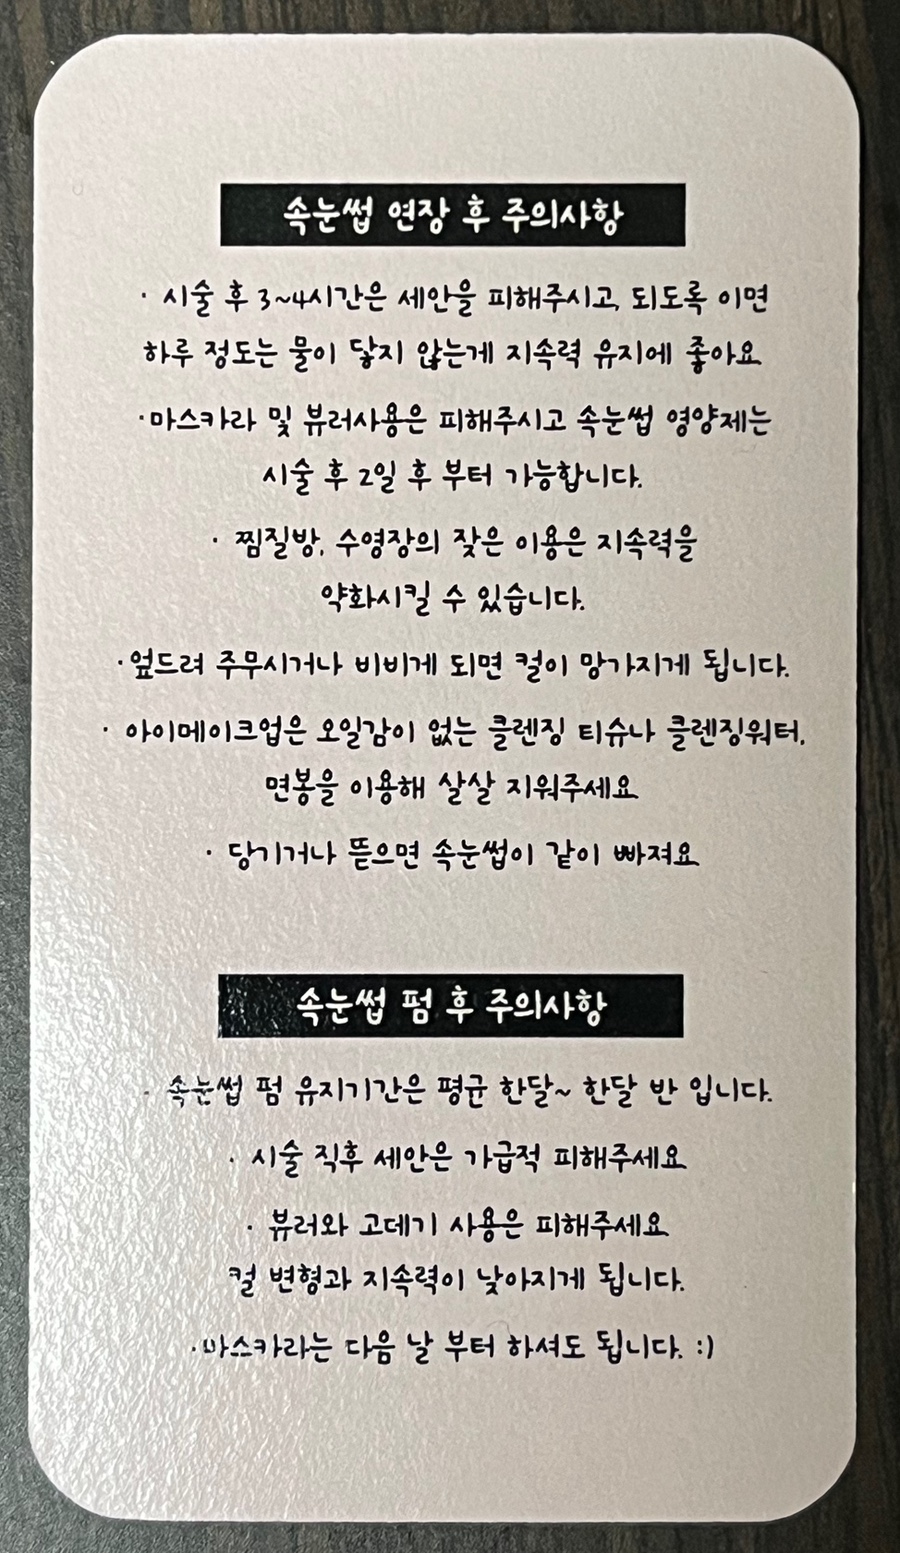 속눈썹 연장 후 주의사항
· 시술 후 3~4시간은 세안을 피해주시고, 되도록 이면
하루 정도는 물이 닿지 않는게 지속력 유지에 좋아요
·마스카라 및 뷰러사용은 피해주시고 속눈썹 영양제는
시술 후 2일 후 부터 가능합니다.
· 찜질방, 수영장의 잦은 이용은 지속력을
약화시킬 수 있습니다.
·엎드려 주무시거나 비비게 되면 컬이 망가지게 됩니다.
· 아이메이크업은 오일감이 없는 클렌징 티슈나 클렌징워터,
면봉을 이용해 살살 지워주세요
· 당기거나 뜯으면 속눈썹이 같이 빠져요
속눈썹 펌 후 주의사항
· 속눈썹 펌 유지기간은 평균 한달~ 한달 반 입니다.
· 시술 직후 세안은 가급적 피해주세요
· 뷰러와 고데기 사용은 피해주세요
컬 변형과 지속력이 낮아지게 됩니다.
·마스카라는 다음 날 부터 하셔도 됩니다. :)